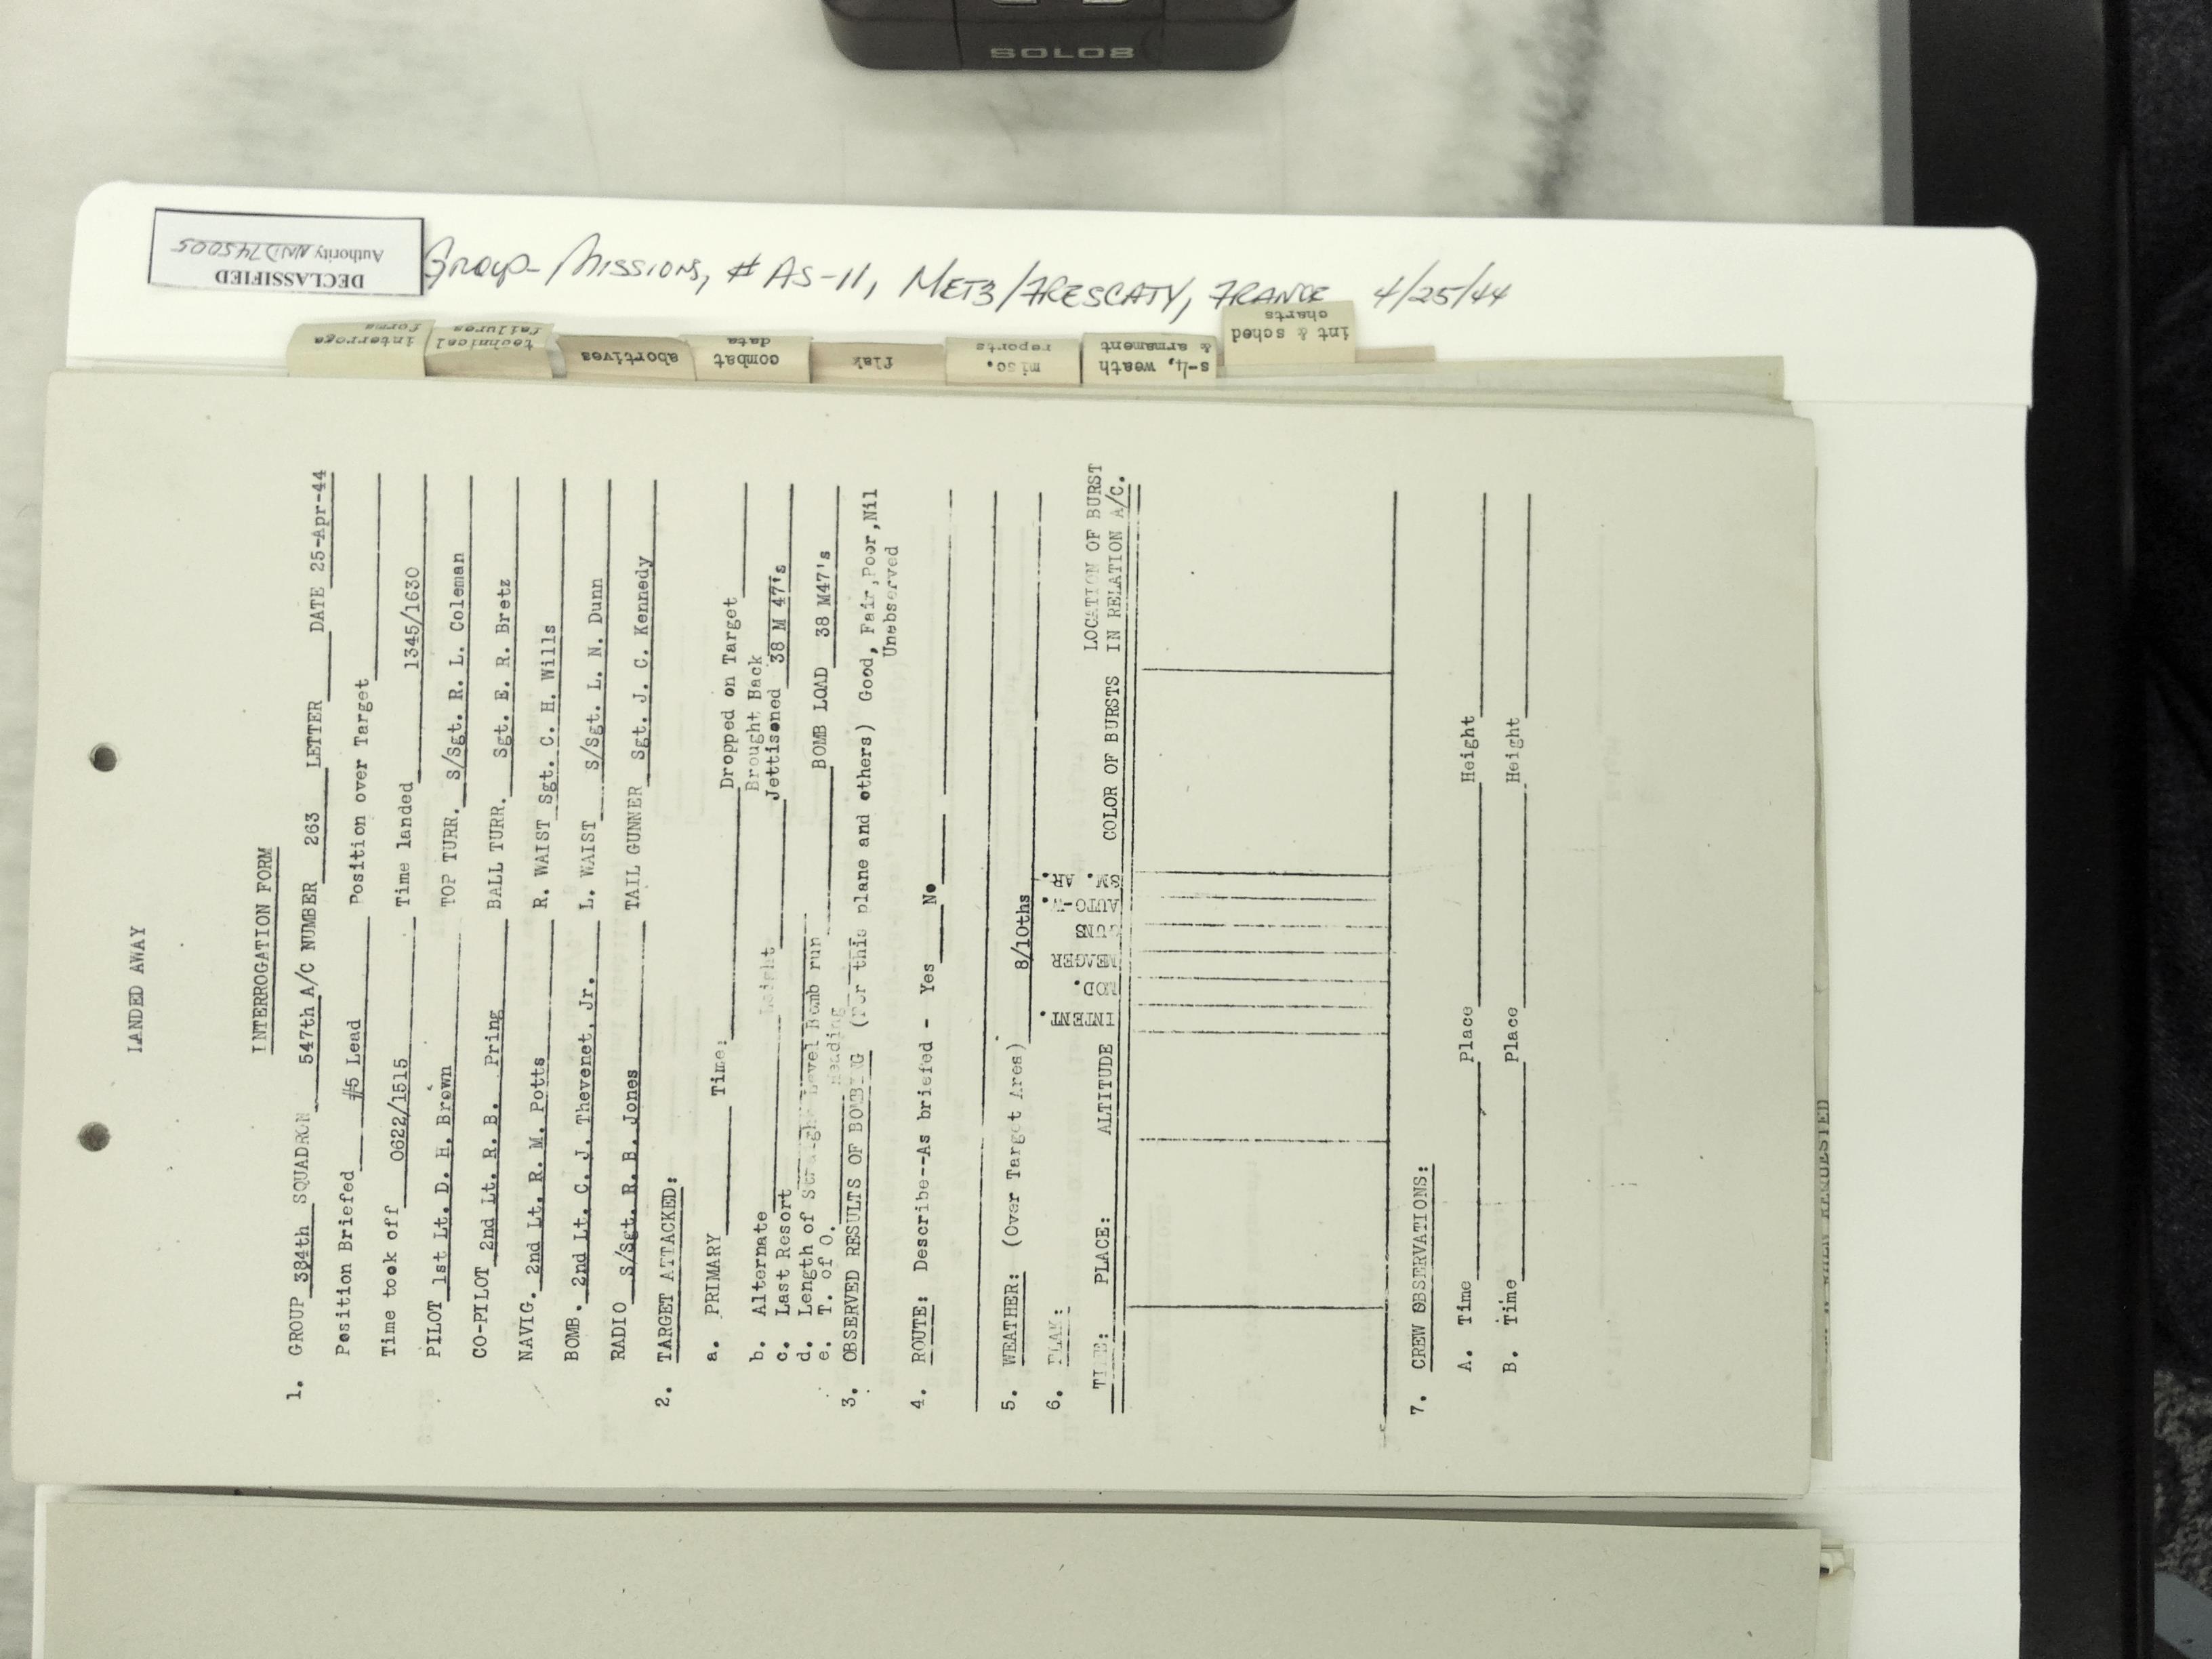 SOLO8
DECLASSIFIED
Authority NND745005
Group-Missions, # AS-11, METZ/FRESCATY, FRANCE 4/25/44
interroga
forms
technical
failures
abortives
combat
data
flak
misc.
reports
s-4, weath
& armament
int & sched
charts
LANDED AWAY
INTERROGATION FORM
1. GROUP 384th SQUADRON 547th A/C NUMBER 263 LETTER DATE 25-Apr-44
Position Briefed #5 Lead Position over Target
Time took off 0622/1515 Time landed 1345/1630
PILOT 1st Lt. D. H. Brown TOP TURR. S/Sgt. R. L. Coleman
CO-PILOT 2nd Lt. R. B. Pring BALL TURR. Sgt. E. R. Bretz
NAVIG. 2nd Lt. R. M. Potts R. WAIST Sgt. C. H. Wills
BOMB. 2nd Lt. C. J. Thevenet, Jr. L. WAIST S/Sgt. L. N. Dunn
RADIO S/Sgt. R. B. Jones TAIL GUNNER Sgt. J. C. Kennedy
2. TARGET ATTACKED:
a. PRIMARY Time: Dropped on Target
b. Alternate Height Brought Back
c. Last Resort Jettisoned 38 M 47's
d. Length of Straight Level Bomb run BOMB LOAD 38 M47's
e. T. of O. Heading
3. OBSERVED RESULTS OF BOMBING (For this plane and others) Good, Fair, Poor, Nil
Unobserved
4. ROUTE: Describe--As briefed - Yes No
5. WEATHER: (Over Target Area) 8/10ths
6. FLAK:
TIME: PLACE: ALTITUDE INTENT. MOD. MEAGER GUNS AUTO-W. SM. AR. COLOR OF BURSTS LOCATION OF BURST
IN RELATION A/C.
7. CREW OBSERVATIONS:
A. Time Place Height
B. Time Place Height